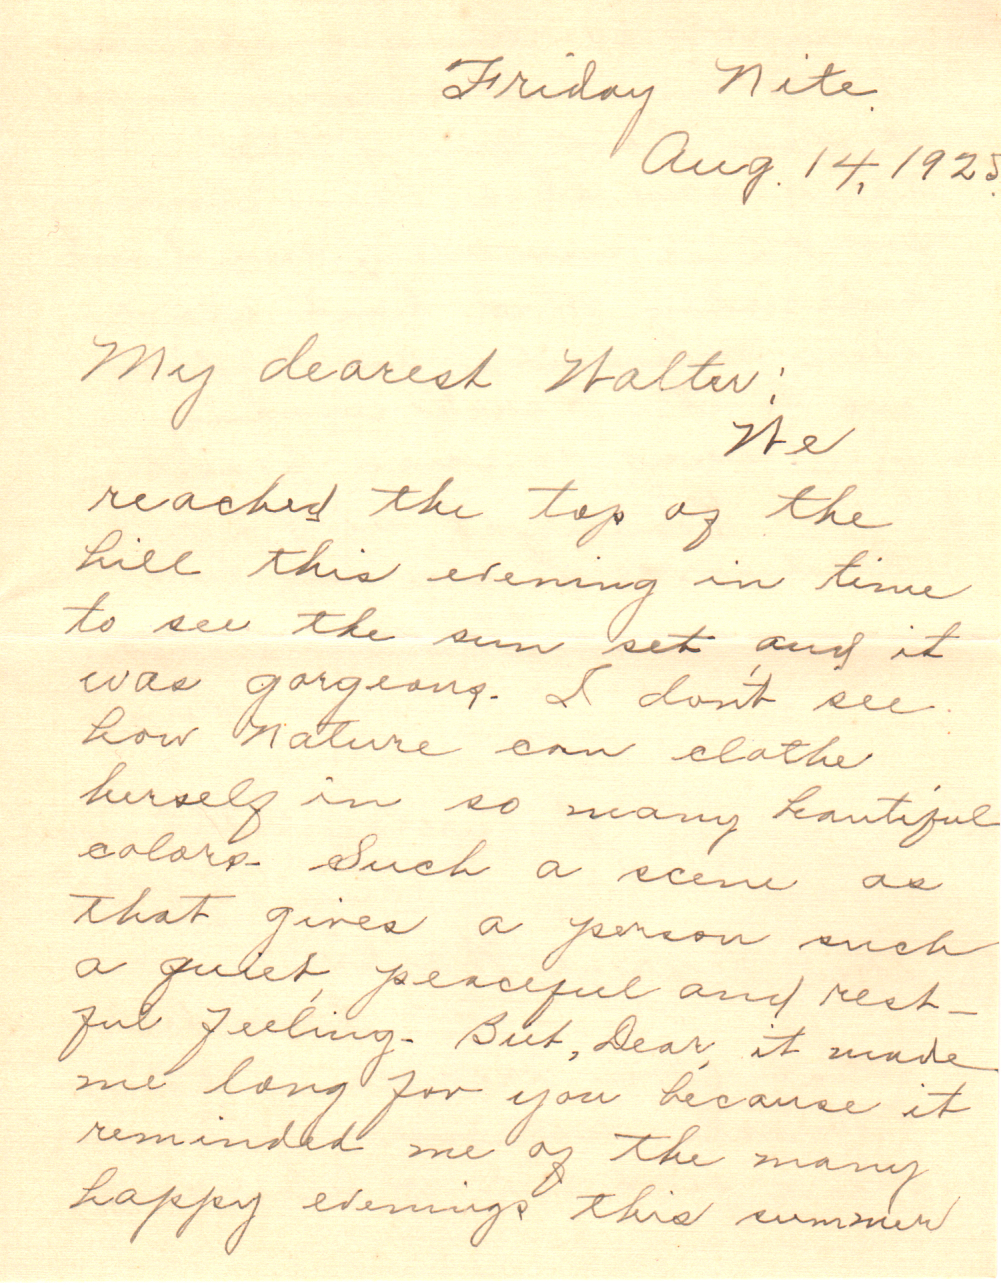 Friday Nite.
Aug. 14, 1925.
My dearest Walter:
We
reached the top of the
hill this evening in time
to see the sun set and it
was gorgeous. I don't see
how Nature can clothe
herself in so many beautiful
colors. Such a scene as
that gives a person such
a quiet, peaceful and rest-
ful feeling. But, Dear, it made
me long for you because it
reminded me of the many
happy evenings this summer